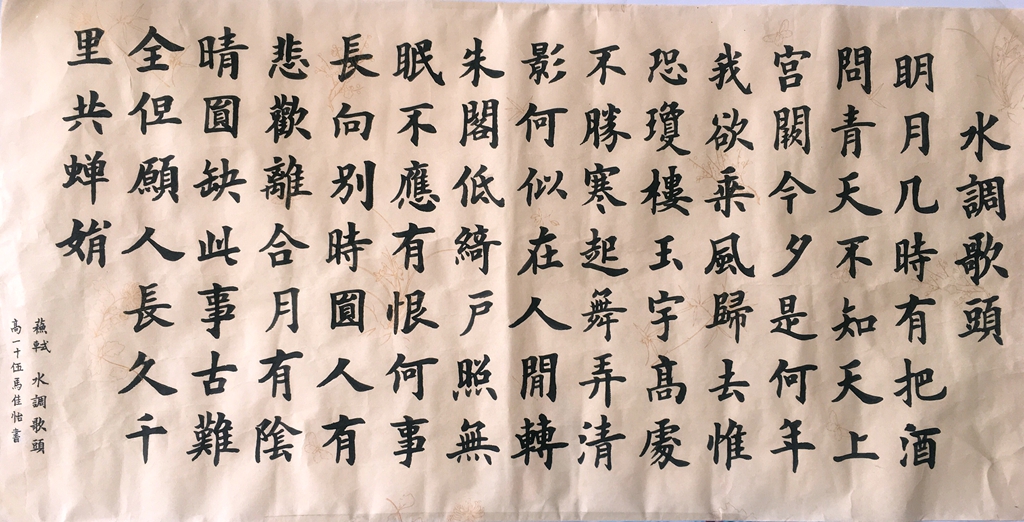 水調歌頭
明月几時有把酒
問青天不知天上
宮闕今夕是何年
我欲乘風歸去惟
恐瓊樓玉宇高處
不勝寒起舞弄清
影何似在人間轉
朱閣低綺戶照無
眠不應有恨何事
長向別時圓人有
悲歡離合月有陰
晴圓缺此事古難
全但願人長久千
里共蟬娟
蘇軾 水調歌頭
高一十伍馬佳怡書